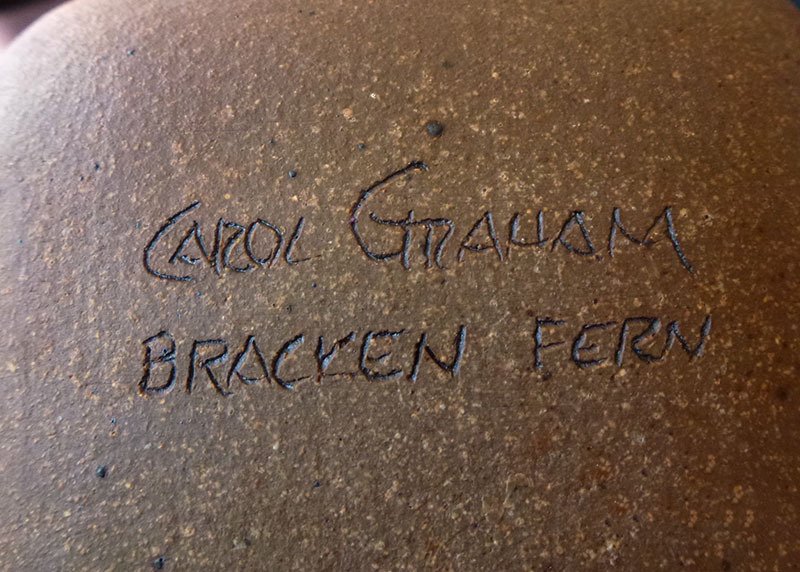 CAROL GRAHAM
BRACKEN FERN